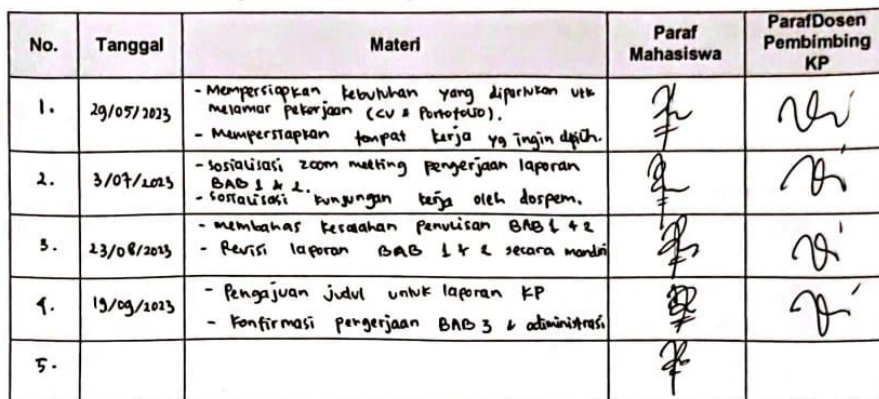 No. Tanggal Materi Paraf Mahasiswa ParafDosen Pembimbing KP
1. 29/05/2023 - Mempersiapkan kebutuhan yang diperlukan utk
melamar pekerjaan (CV & Portofolio).
- Mempersiapkan tempat kerja yg ingin dipilih.
2. 3/07/2023 - Sosialisasi zoom meeting pengerjaan laporan
BAB 1 & 2.
- Sosialisasi kunjungan kerja oleh dospem.
3. 23/08/2023 - membahas kesalahan penulisan BAB 1 & 2
- Revisi laporan BAB 1 & 2 secara mandiri
4. 19/09/2023 - Pengajuan judul untuk laporan KP
- Konfirmasi pengerjaan BAB 3 & administrasi
5.